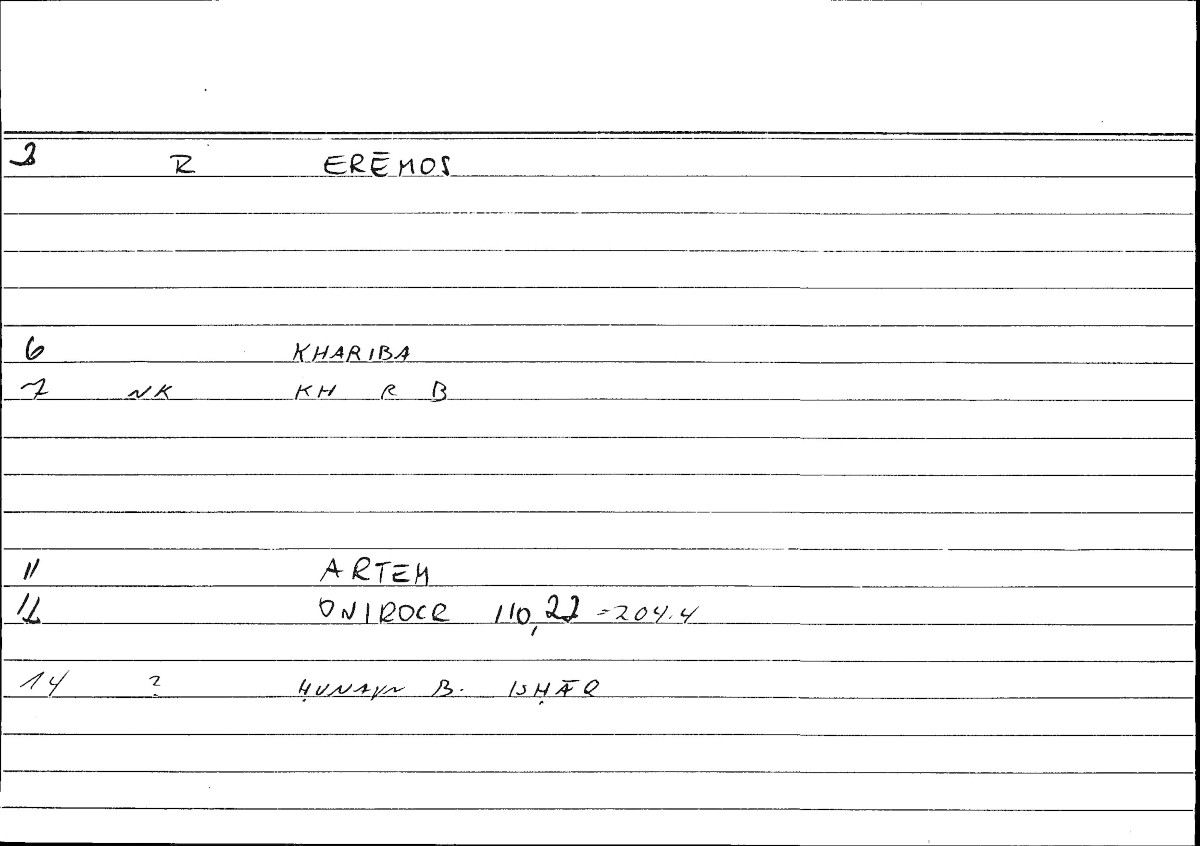 3 R ERĒMOS
6 KHARIBA
7 NK KH R B
11 ARTEM
12 ONIROCR 110,22 =204.4
14 ? ḤUNAYN B. ISḤĀQ